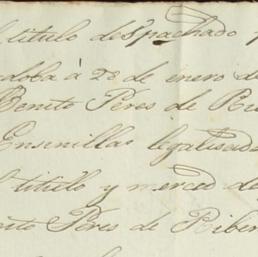 título despachado
doba á 20 de enero de
Benito Peres de
Ensinillas legalisado
título y merced de
nito Peres de Riber